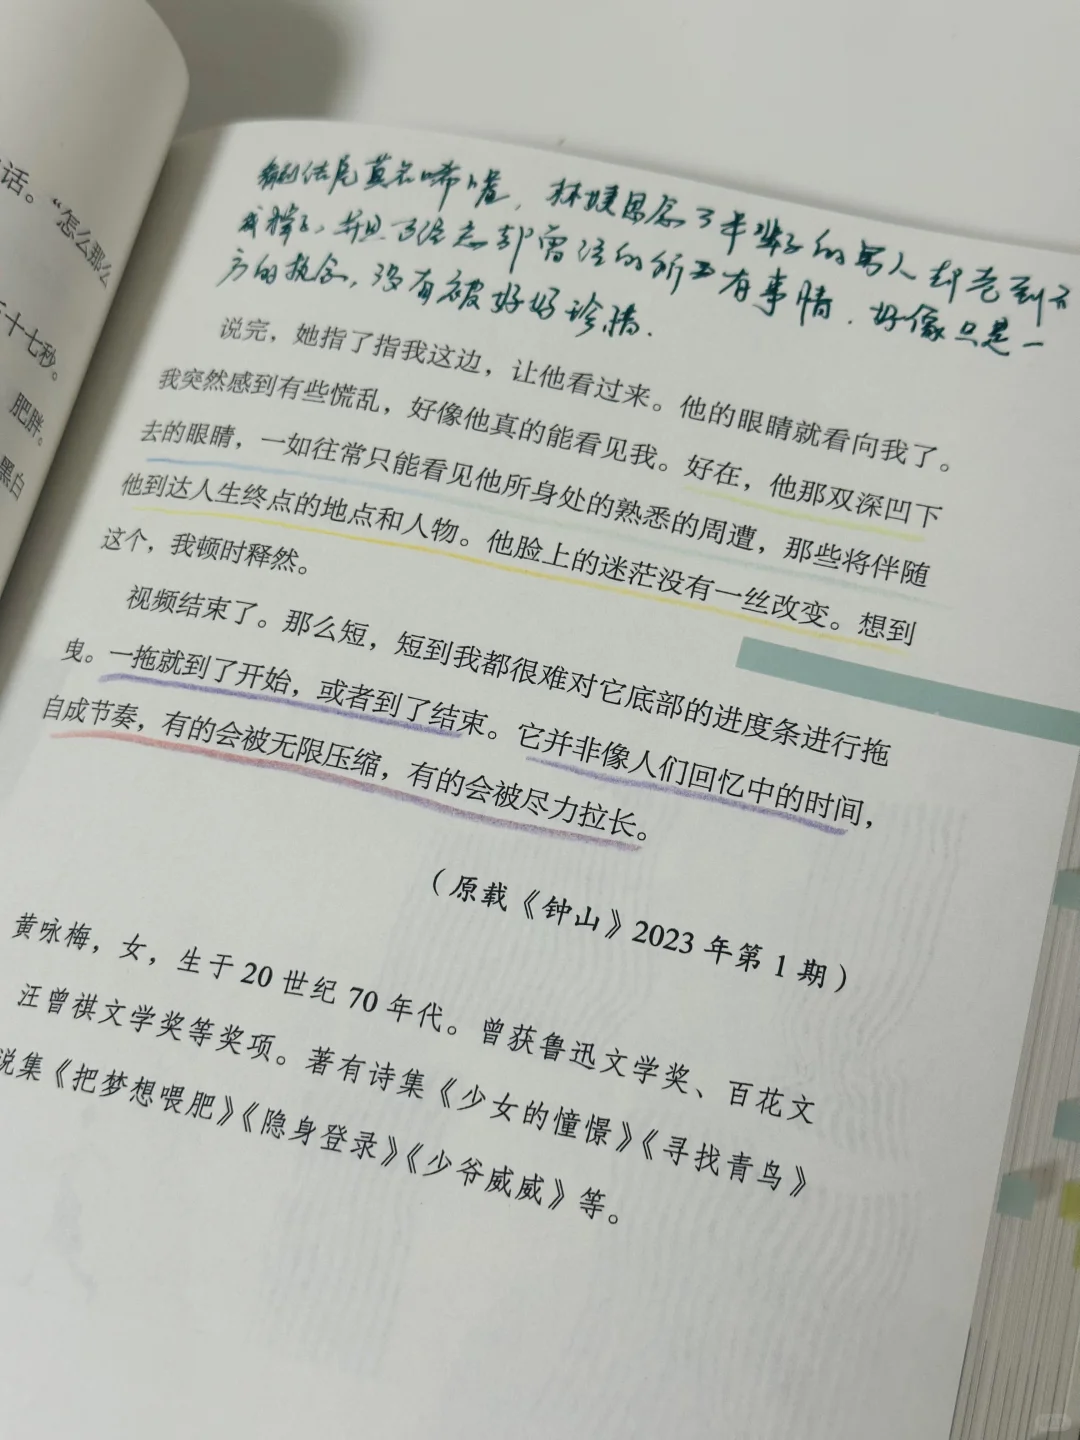 看到结尾莫名唏嘘，林嫂思念了半辈子的男人却老到又
并且忘却曾经的所有事情．好像只是一
方的执念，没有被好好珍惜．
说完，她指了指我这边，让他看过来。他的眼睛就看向我了。
我突然感到有些慌乱，好像他真的能看见我。好在，他那双深凹下
去的眼睛，一如往常只能看见他所身处的熟悉的周遭，那些将伴随
他到达人生终点的地点和人物。他脸上的迷茫没有一丝改变。想到
这个，我顿时释然。
视频结束了。那么短，短到我都很难对它底部的进度条进行拖
曳。一拖就到了开始，或者到了结束。它并非像人们回忆中的时间，
自成节奏，有的会被无限压缩，有的会被尽力拉长。
（原载《钟山》2023 年第 1 期）
黄咏梅，女，生于 20 世纪 70 年代。曾获鲁迅文学奖、百花文
汪曾祺文学奖等奖项。著有诗集《少女的憧憬》《寻找青鸟》
说集《把梦想喂肥》《隐身登录》《少爷威威》等。
话。“怎么那么
十七秒。
肥胖。
黑白